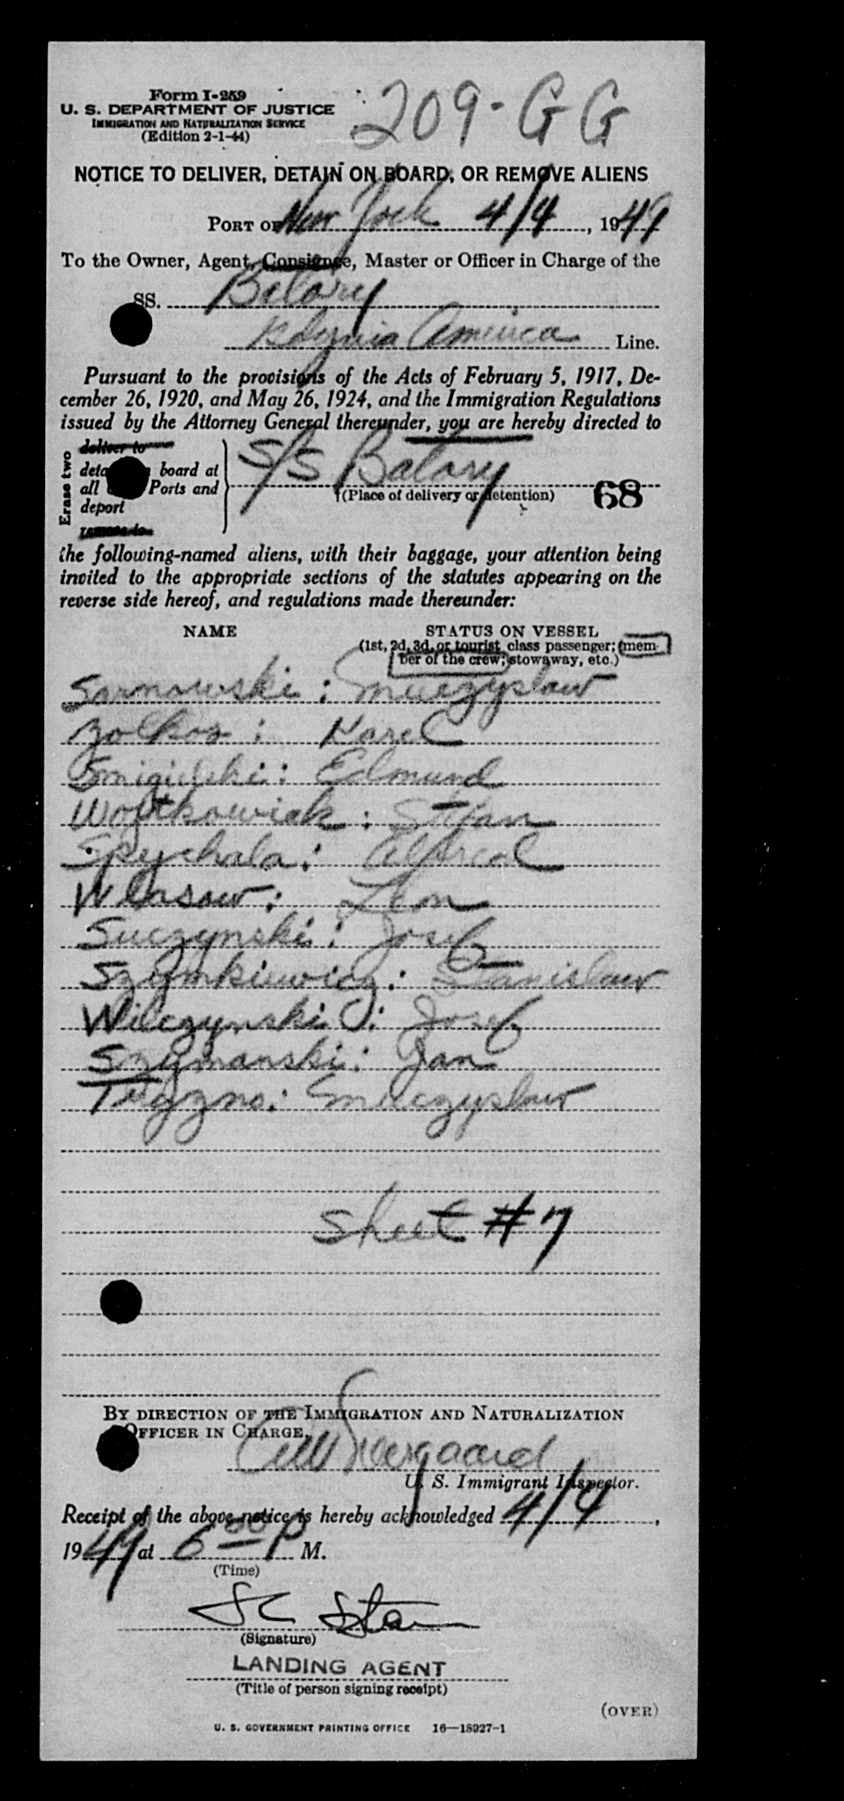 Form I-259
209-GG
U. S. DEPARTMENT OF JUSTICE
IMMIGRATION AND NATURALIZATION SERVICE
(Edition 2-1-44)
NOTICE TO DELIVER, DETAIN ON BOARD, OR REMOVE ALIENS
PORT OF New York 4/4, 1949
To the Owner, Agent, Consignee, Master or Officer in Charge of the
SS. Batory
America Line.
Pursuant to the provisions of the Acts of February 5, 1917, De-
cember 26, 1920, and May 26, 1924, and the Immigration Regulations
issued by the Attorney General thereunder, you are hereby directed to
Erase two
deliver to
board at
all Ports and
deport
remove to
S/S Batory
(Place of delivery or detention)
68
the following-named aliens, with their baggage, your attention being
invited to the appropriate sections of the statutes appearing on the
reverse side hereof, and regulations made thereunder:
NAME STATUS ON VESSEL
(1st, 2d, 3d, or tourist class passenger; mem-
ber of the crew; stowaway, etc.)
Sarnowski: Mieczyslaw
Zolkos: Karel
Smigielski: Edmund
Wojtkowiak: Stefan
Spychala:
Wlasow: Leon
Suczynski: Josef
Szymkiewicz: Stanislaw
Wilczynski: Josef
Szymanski: Jan
Mieczyslaw
Sheet #7
BY DIRECTION OF THE IMMIGRATION AND NATURALIZATION
OFFICER IN CHARGE.
U. S. Immigrant Inspector.
Receipt of the above notice is hereby acknowledged 4/4,
1949 at 6 00 P M.
(Time)
(Signature)
LANDING AGENT
(Title of person signing receipt)
(OVER)
U. S. GOVERNMENT PRINTING OFFICE 16—18927-1